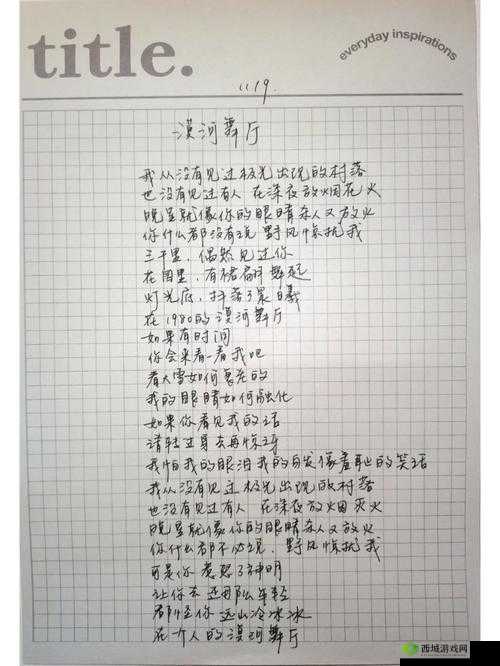 title.
everyday inspirations
11.19.
漠河舞厅
我从没有见过极光出现的村落
也没有见过有人 在深夜放烟花火
晚星就像你的眼睛杀人又放火
你什么都没有说 野风惊扰我
三千里,偶然见过你
花园里,有裙翩舞起
灯光底,抖落了晨曦
在1980的漠河舞厅
如果有时间
你会来看一看我吧
看大雪如何衰老的
我的眼睛如何融化
如果你看见我的话
请转过身去再惊讶
我怕我的眼泪我的白发像羞耻的笑话
我从没有见过极光出现的村落
也没有见过有人 在深夜放烟灭火
晚星就像你的眼睛杀人又放火
你什么都不必说,野风惊扰我
可是你 惹怒了神明
让你去 还那么年轻
都怪你 远山冷冰冰
在一个人的漠河舞厅
西城游戏网